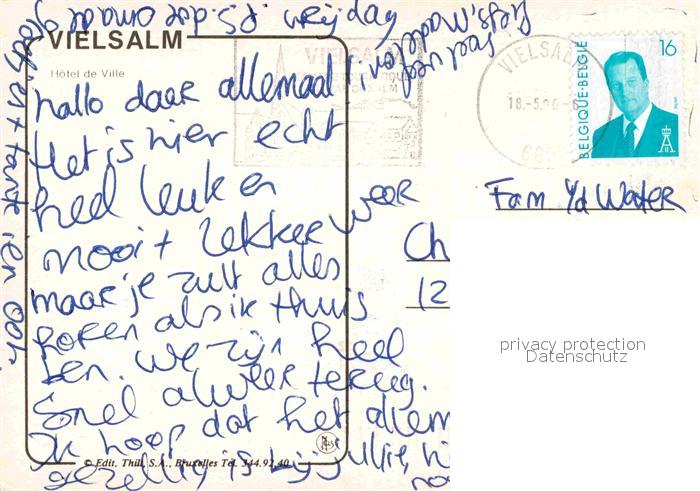 VIELSALM
Hôtel de Ville
hallo daar allemaal
Het is hier echt
heel leuk en
nooit lekker weer
maar je zult alles
horen als ik thuis
ben. We zijn heel
snel alweer terug.
Ik hoop dat het allem
gezellig is bij jullie,
P.S. der
vrijdag
tot
Groetjes, Madelon
en ook
VIELSALM
VIELSAL
18.-5.96-6
BELGIQUE·BELGIË
16
Fam v/d Water
Ch
12
privacy protection
Datenschutz
© Edit. Thill, S.A., Bruxelles Tél. 344.92.40